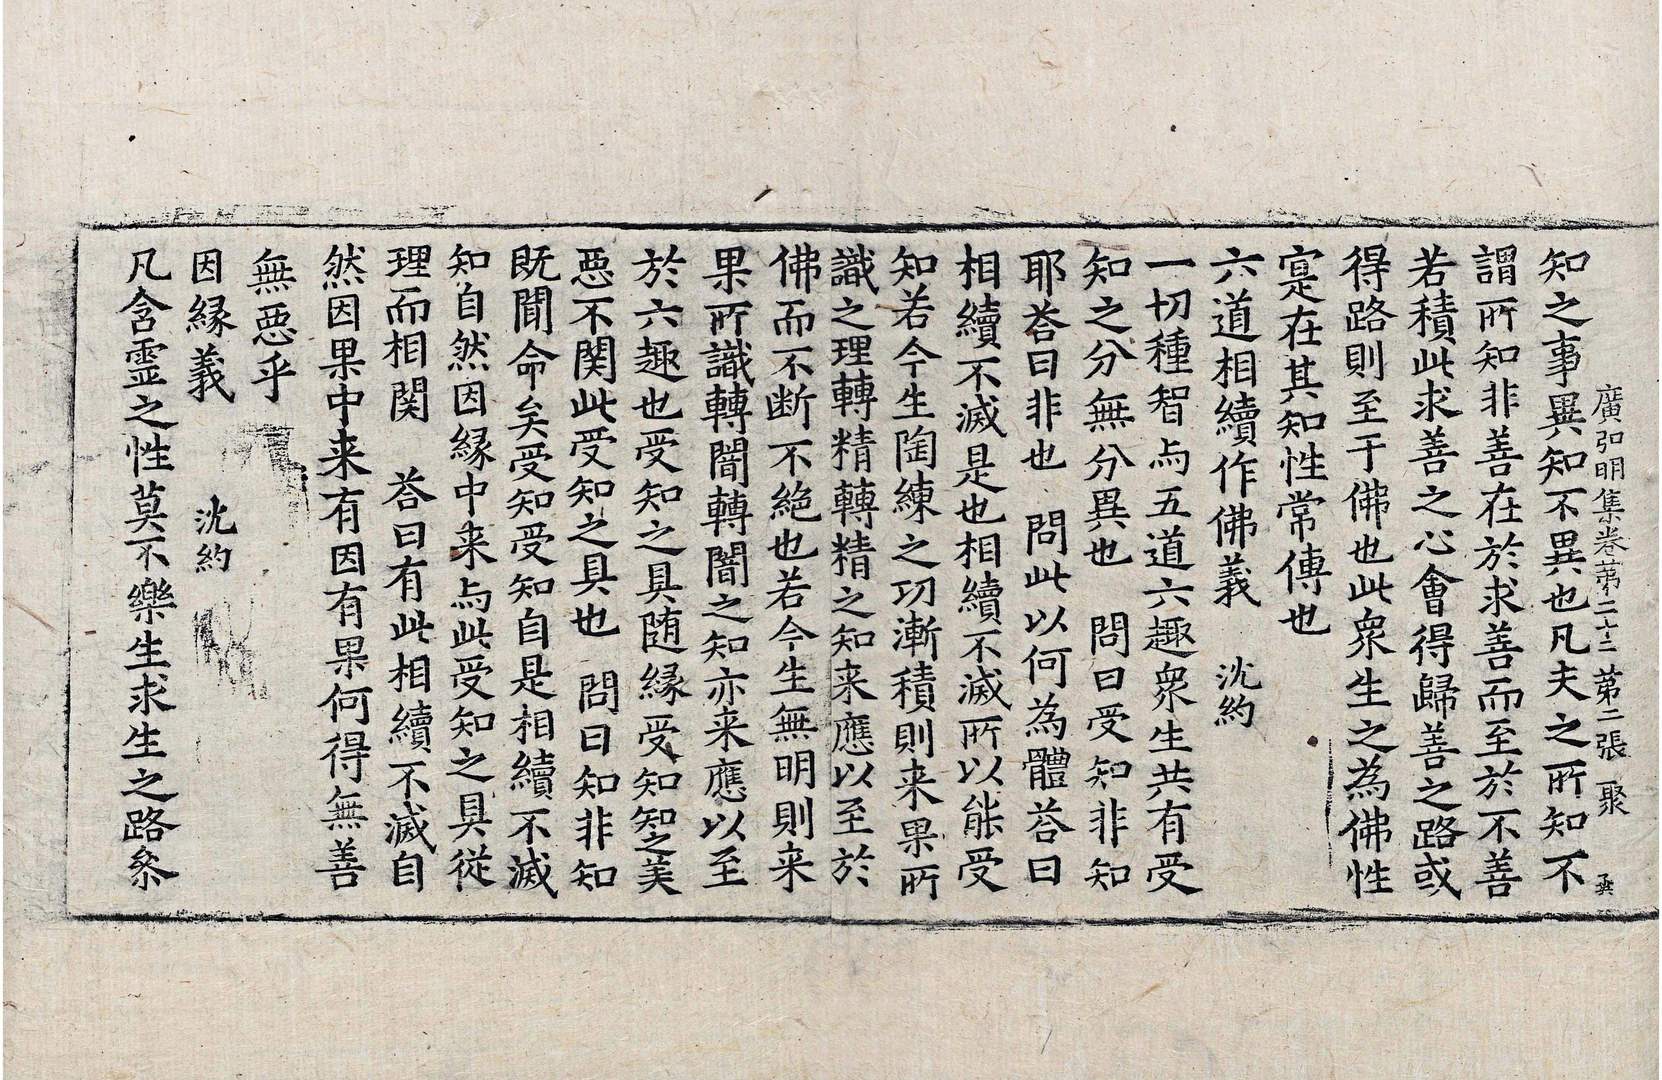 廣弘明集卷第二十二 第二張 聚
知之事異知不異也凡夫之所知不
謂所知非善在於求善而至於不善
若積此求善之心會得歸善之路或
得路則至于佛也此衆生之為佛性
寔在其知性常傳也
六道相續作佛義 沈約
一切種智与五道六趣衆生共有受
知之分無分異也 問曰受知非知
耶荅曰非也 問此以何為體荅曰
相續不滅是也相續不滅所以能受
知若今生陶練之功漸積則来果所
識之理轉精轉精之知来應以至於
佛而不断不絶也若今生無明則来
果所識轉闇轉闇之知亦来應以至
於六趣也受知之具随緣受知知之美
惡不関此受知之具也 問曰知非知
既聞命矣受知受知自是相續不滅
知自然因緣中来与此受知之具從
理而相関 荅曰有此相續不滅自
然因果中来有因有果何得無善
無惡乎
因緣義 沈約
凡含靈之性莫不樂生求生之路叅